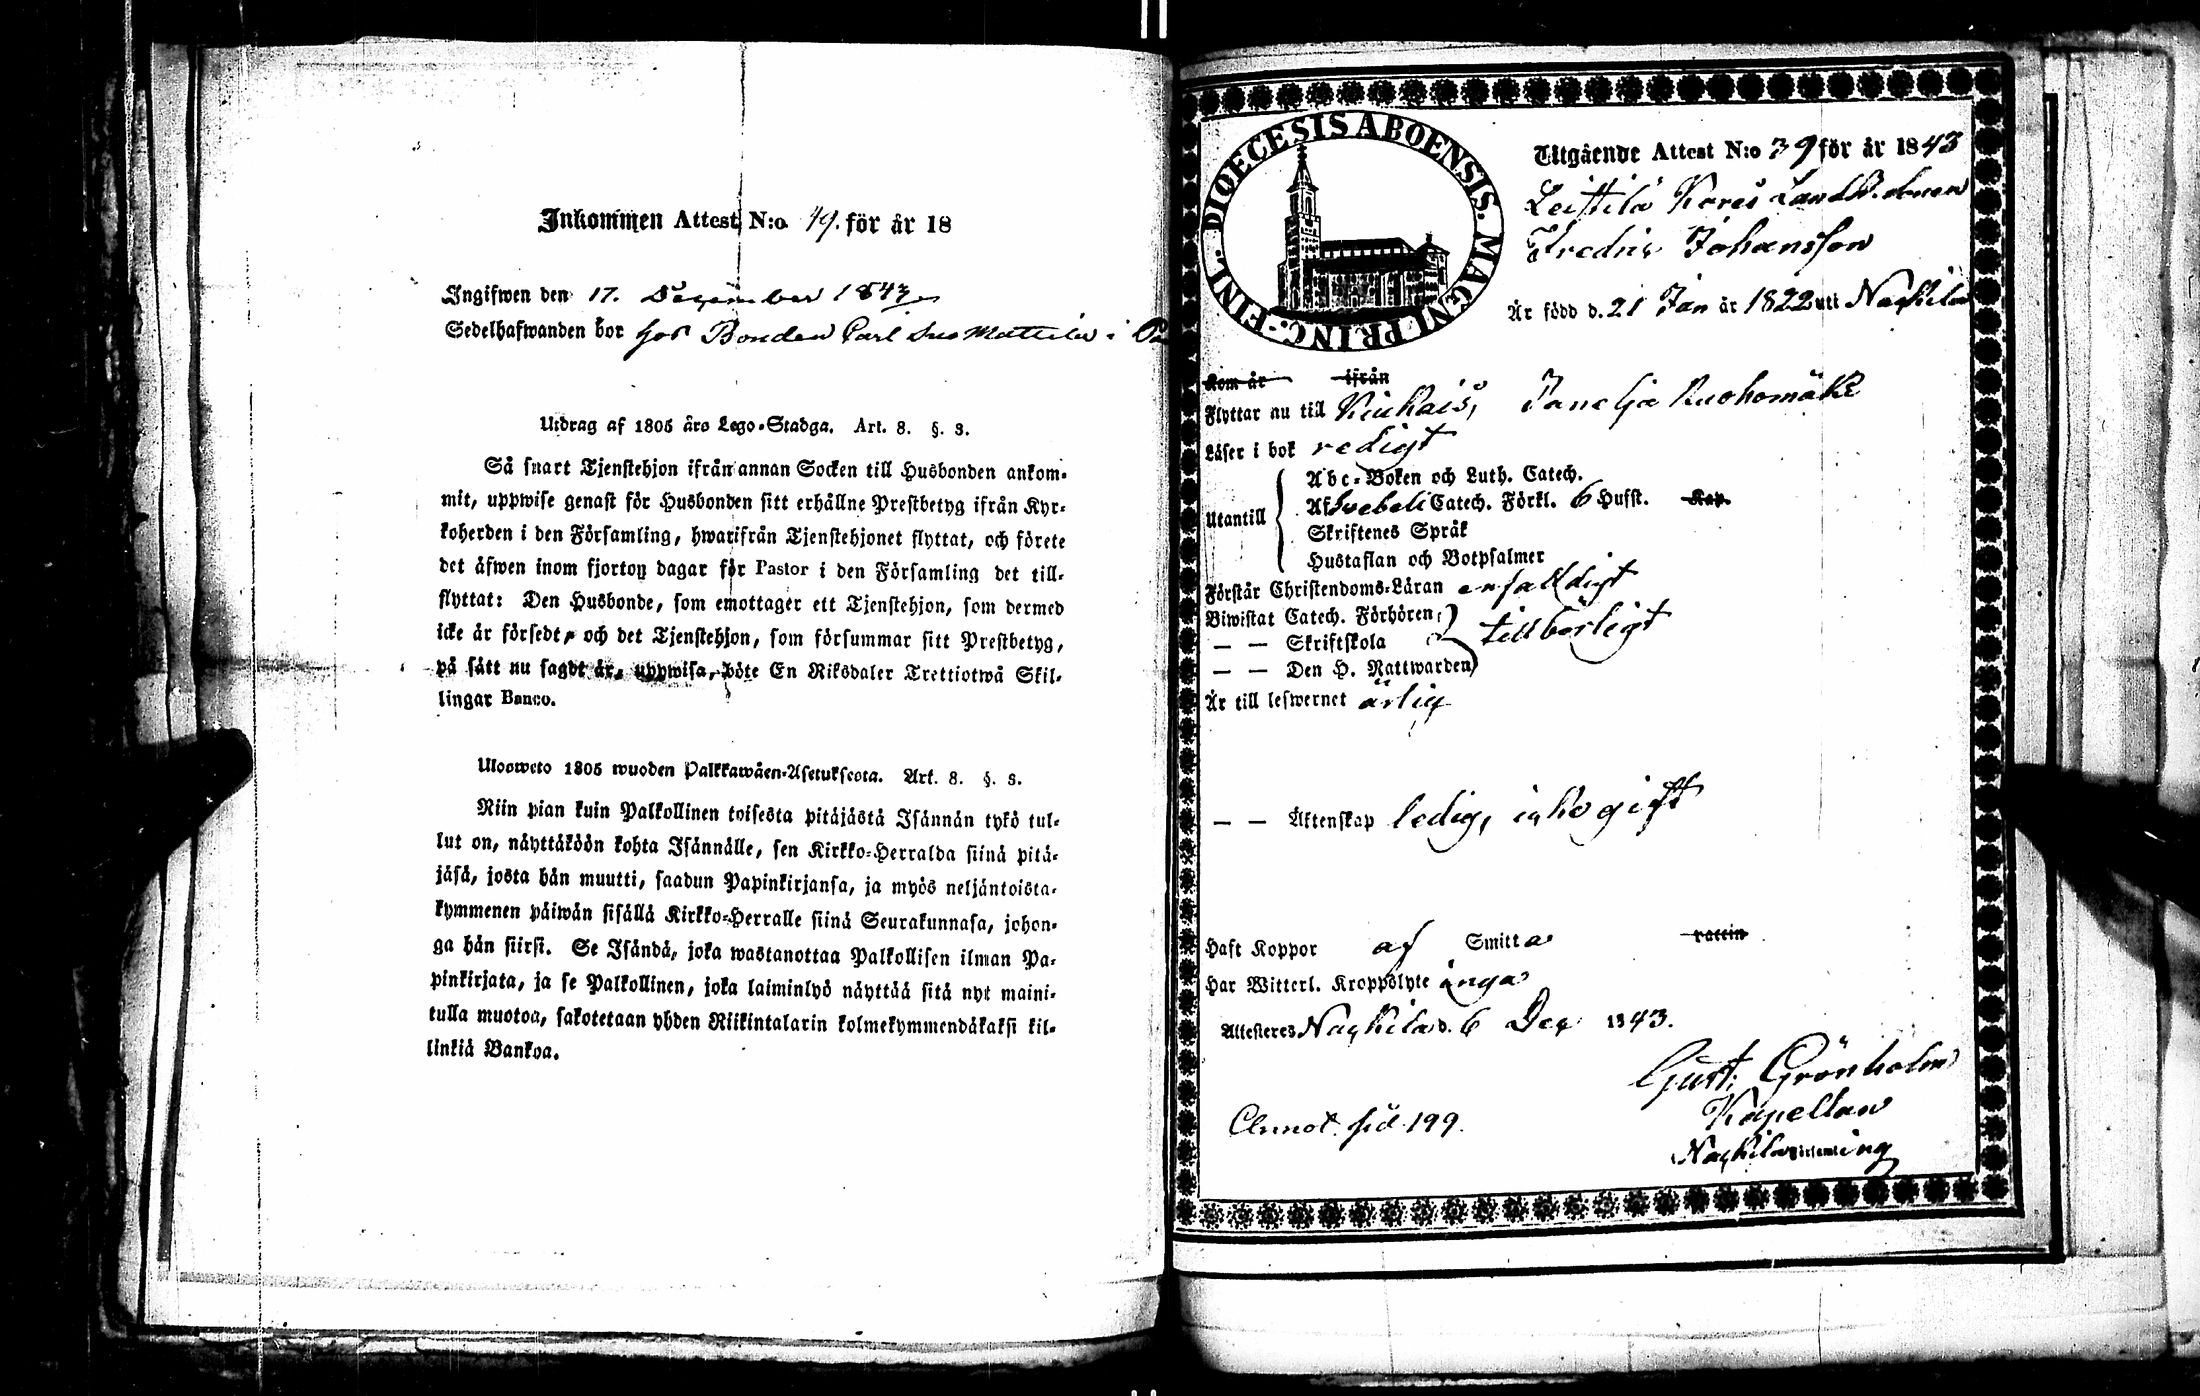 Inkommen Attest N:o 49. för år 18
Ingifwen den 17. December 1843
Sedelhafwanden bor hos Bonden Carl Sus Mattila i
Utdrag af 1805 års Lego-Stadga. Art. 8. §. 3.
Så snart Tjenstehjon ifrån annan Socken till Husbonden ankom-
mit, uppwise genast för Husbonden sitt erhållne Prestbetyg ifrån Kyr-
koherden i den Församling, hwarifrån Tjenstehjonet flyttat, och förete
det äfwen inom fjorton dagar för Pastor i den Församling det till-
flyttat: Den Husbonde, som emottager ett Tjenstehjon, som dermed
icke är försedt, och det Tjenstehjon, som försummar sitt Prestbetyg,
på sätt nu sagdt är, uppwisa, böte En Riksdaler Trettiotwå Skil-
lingar Banco.
Ulosweto 1805 wuoden Palkkawäen-Asetuksesta. Art. 8. §. 3.
Niin pian kuin Palkollinen toisesta pitäjästä Isännän tykö tul-
lut on, näyttäköön kohta Isännälle, sen Kirkko-Herralda siinä pitä-
jäsä, josta hän muutti, saadun Papinkirjansa, ja myös neljäntoista-
kymmenen päiwän sisällä Kirkko-Herralle siinä Seurakunnasa, johon-
ga hän siirsi. Se Isändä, joka wastanottaa Palkollisen ilman Pa-
pinkirjata, ja se Palkollinen, joka laiminlyö näyttää sitä nyt maini-
tulla muotoa, sakotetaan yhden Riikintalarin kolmekymmendäkaksi kil-
linkiä Bankoa.
DIOECESIS ABOENSIS. MAGNI PRINC.-FINL.
Utgående Attest N:o 39 för år 1843
Leistilä Kares
Fredric Johansson
Är född d. 21 Jan år 1822 uti Nackila
Kom år ifrån
Flyttar nu till Kiukais, Panelja Ruohomäki
Läser i bok redigt
Utantill
Abc-Boken och Luth. Catech.
Af Svebeli Catech. Förkl. 6 Hufst. Kap.
Skriftenes Språk
Hustaflan och Botpsalmer
Förstår Christendoms-Läran enfalldigt
Biwistat Catech. Förhören
— — Skriftskola tillbörligt
— — Den H. Nattwarden
Är till lefwernet ärlig
— — Äktenskap ledig, icke gift
Haft Koppor af Smitta rattin
Har Witterl. Kroppslyte inga
Attesteres Nackila d. 6 Dec 1843.
Gust: Grönholm
Kapellan
Nackila Församling
Annot. sid. 199.